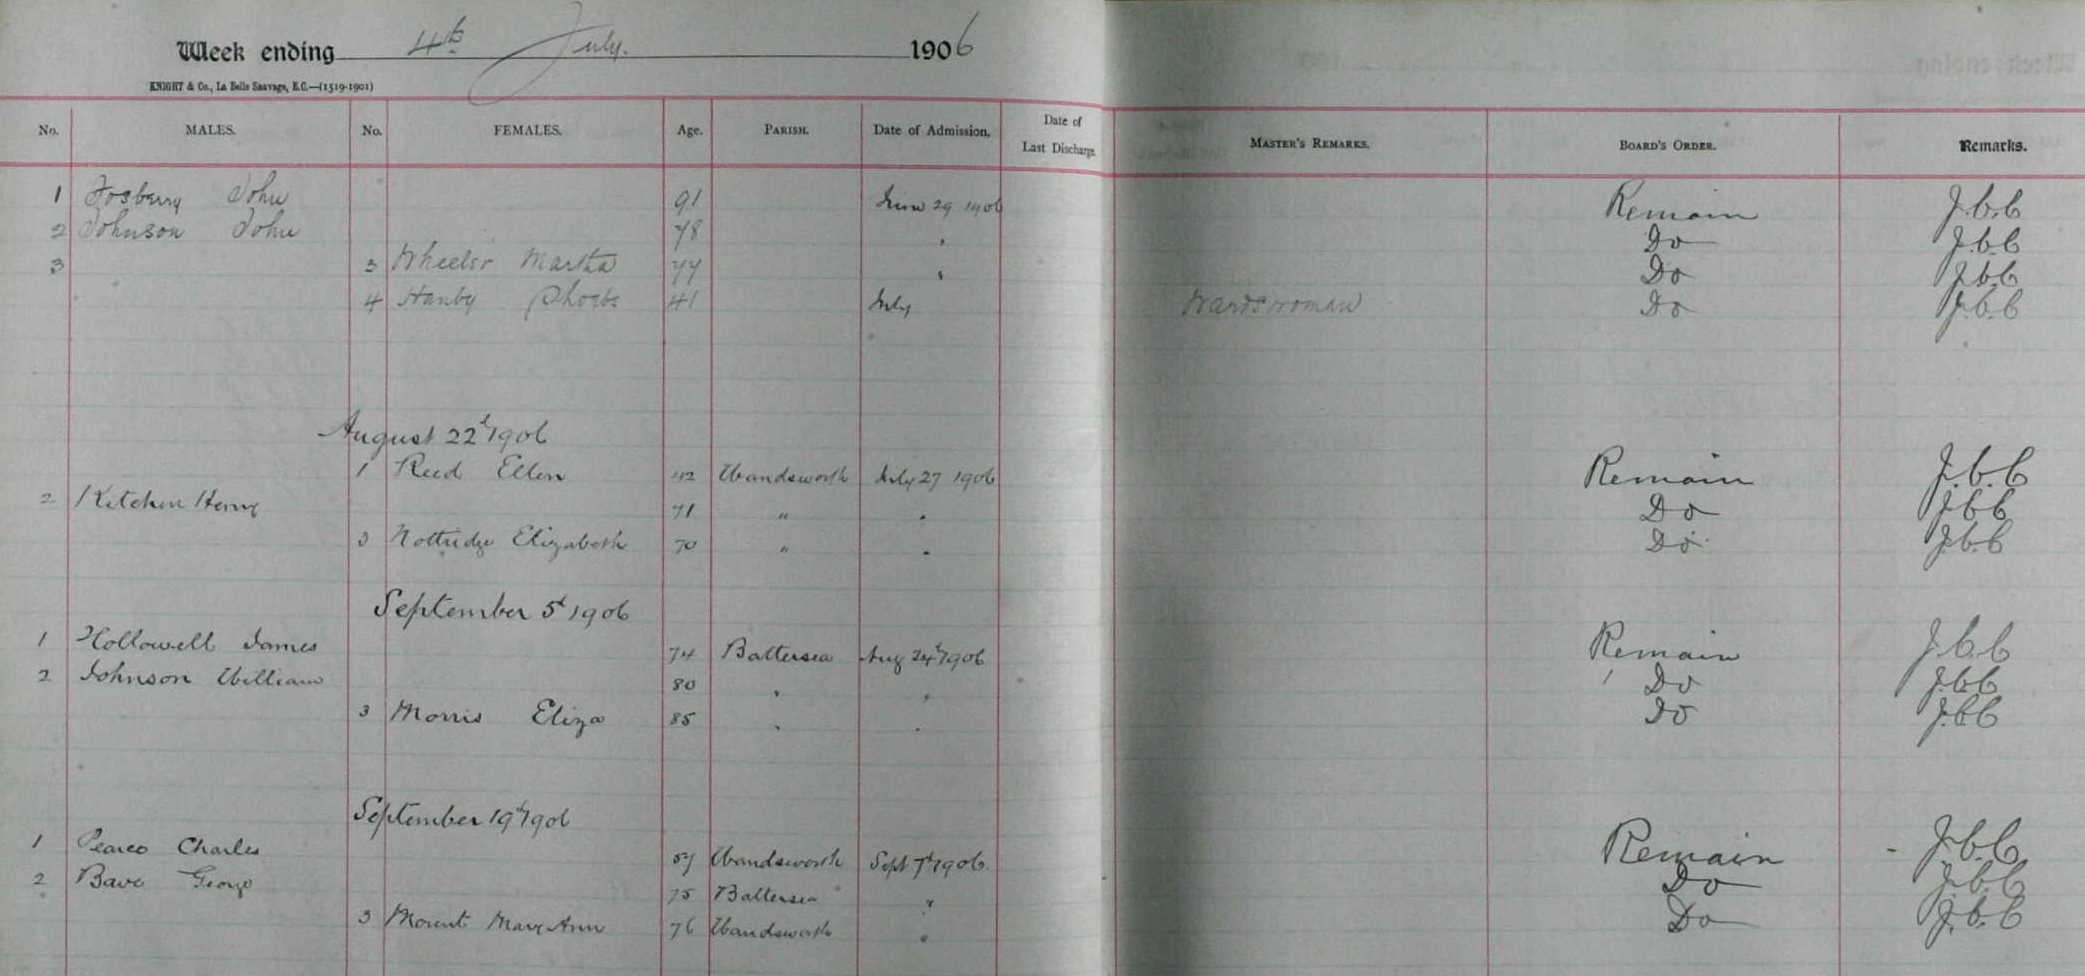 Week ending 4th July. 1906
KNIGHT & Co., La Belle Sauvage, E.C.—(1519-1901)
No. MALES. No. FEMALES. Age. PARISH. Date of Admission. Date of Last Discharge. MASTER'S REMARKS. BOARD'S ORDER. Remarks.
1 Fosberry John 91 June 29 1906 Remain J.C.C
2 Johnson John 78 " Do J.C.C
3 3 Wheeler Martha 77 " Do J.C.C
4 Hanby Phoebe 41 July Wardswoman Do J.C.C
August 22d 1906
1 Reed Ellen 42 Wandsworth July 27 1906 Remain J.C.C
2 Kitchen Henry 71 " " Do J.C.C
3 Nottridge Elizabeth 70 " " Do J.C.C
September 5th 1906
1 Hollowell James 74 Battersea Aug 24th 1906 Remain J.C.C
2 Johnson William 80 " " Do J.C.C
3 Morris Eliza 85 " " Do J.C.C
September 19th 1906
1 Pearce Charles 57 Wandsworth Sept 7th 1906. Remain J.C.C
2 Bave George 75 Battersea " Do J.C.C
3 Mount Mary Ann 76 Wandsworth " Do J.C.C